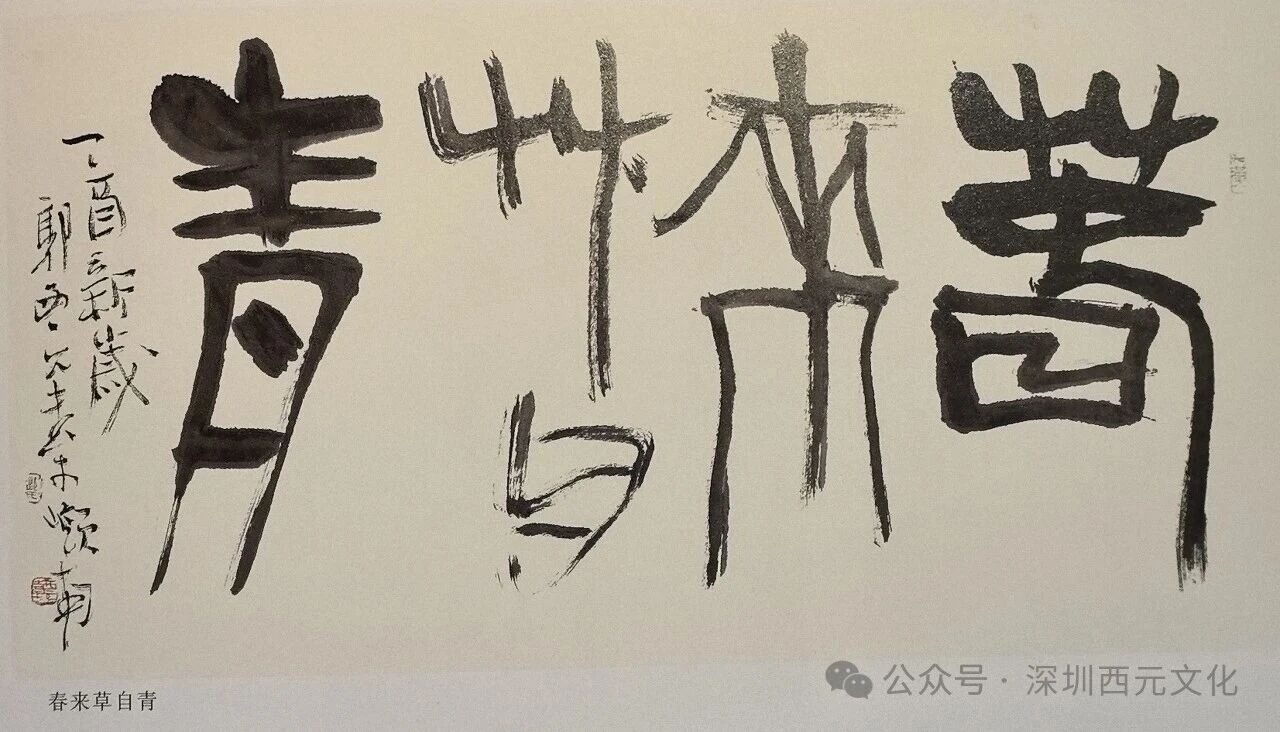 春
來
艸自
青
丁酉新歲
郭西元
春来草自青
公众号·深圳西元文化